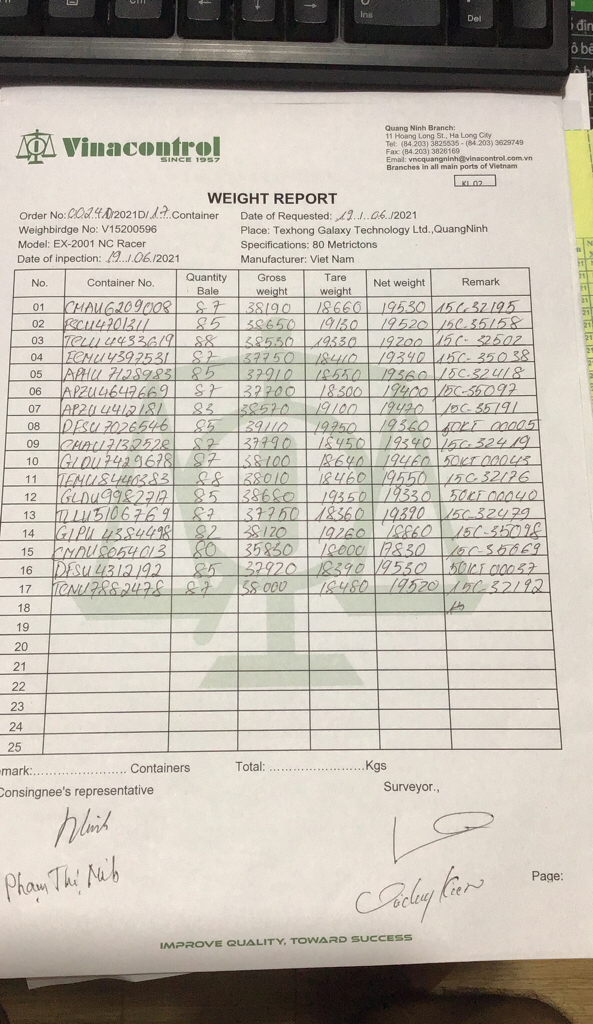 Ins
Del
Vinacontrol
SINCE 1957
Quang Ninh Branch:
11 Hoang Long St., Ha Long City
Tel: (84.203) 3825535 - (84.203) 3629749
Fax: (84.203) 3826169
Email: vncquangninh@vinacontrol.com.vn
Branches in all main ports of Vietnam
KL 02
WEIGHT REPORT
Order No: 0024D/2021D/ 17 Container Date of Requested: 19 / 06 /2021
Weighbirdge No: V15200596 Place: Texhong Galaxy Technology Ltd.,QuangNinh
Model: EX-2001 NC Racer Specifications: 80 Metrictons
Date of inpection: 19 / 06/2021 Manufacturer: Viet Nam
No. Container No. Quantity Bale Gross weight Tare weight Net weight Remark
01 CMAU6209008 87 38190 18660 19530 15C-32195
02 FSCU4701311 85 38650 19130 19520 15C-35158
03 TCLU4433619 88 38530 19330 19200 15C-32502
04 ECMU4397531 87 37750 18410 19340 15C-35038
05 APHU 7128983 85 37910 18550 19360 15C-32418
06 APZU4647669 87 37700 18300 19400 15C-35097
07 APZU4412181 83 38570 19100 19470 15C-35191
08 DFSU7026546 85 39110 19750 19360 50KT 00005
09 CMAU7132528 87 37790 18450 19340 15C-32419
10 GLDU7429678 87 38100 18640 19460 50KT 00043
11 TEMU8440383 88 38010 18460 19550 15C-32176
12 GLDU9982717 85 38680 19350 19330 50KT 00040
13 TLLU5106769 87 37750 18360 19390 15C-32479
14 GIPU 4384498 82 38120 19260 18860 15C-35098
15 CMAU8054013 80 35830 18000 17830 15C-35669
16 DFSU 4312192 85 37920 18390 19530 50KT 00037
17 TCNU7882478 87 38000 18480 19520 15C-32192
18
19
20
21
22
23
24
25
mark:........................ Containers Total: ........................Kgs
Consingnee's representative Surveyor.,
Phạm Thị
Page:
IMPROVE QUALITY, TOWARD SUCCESS